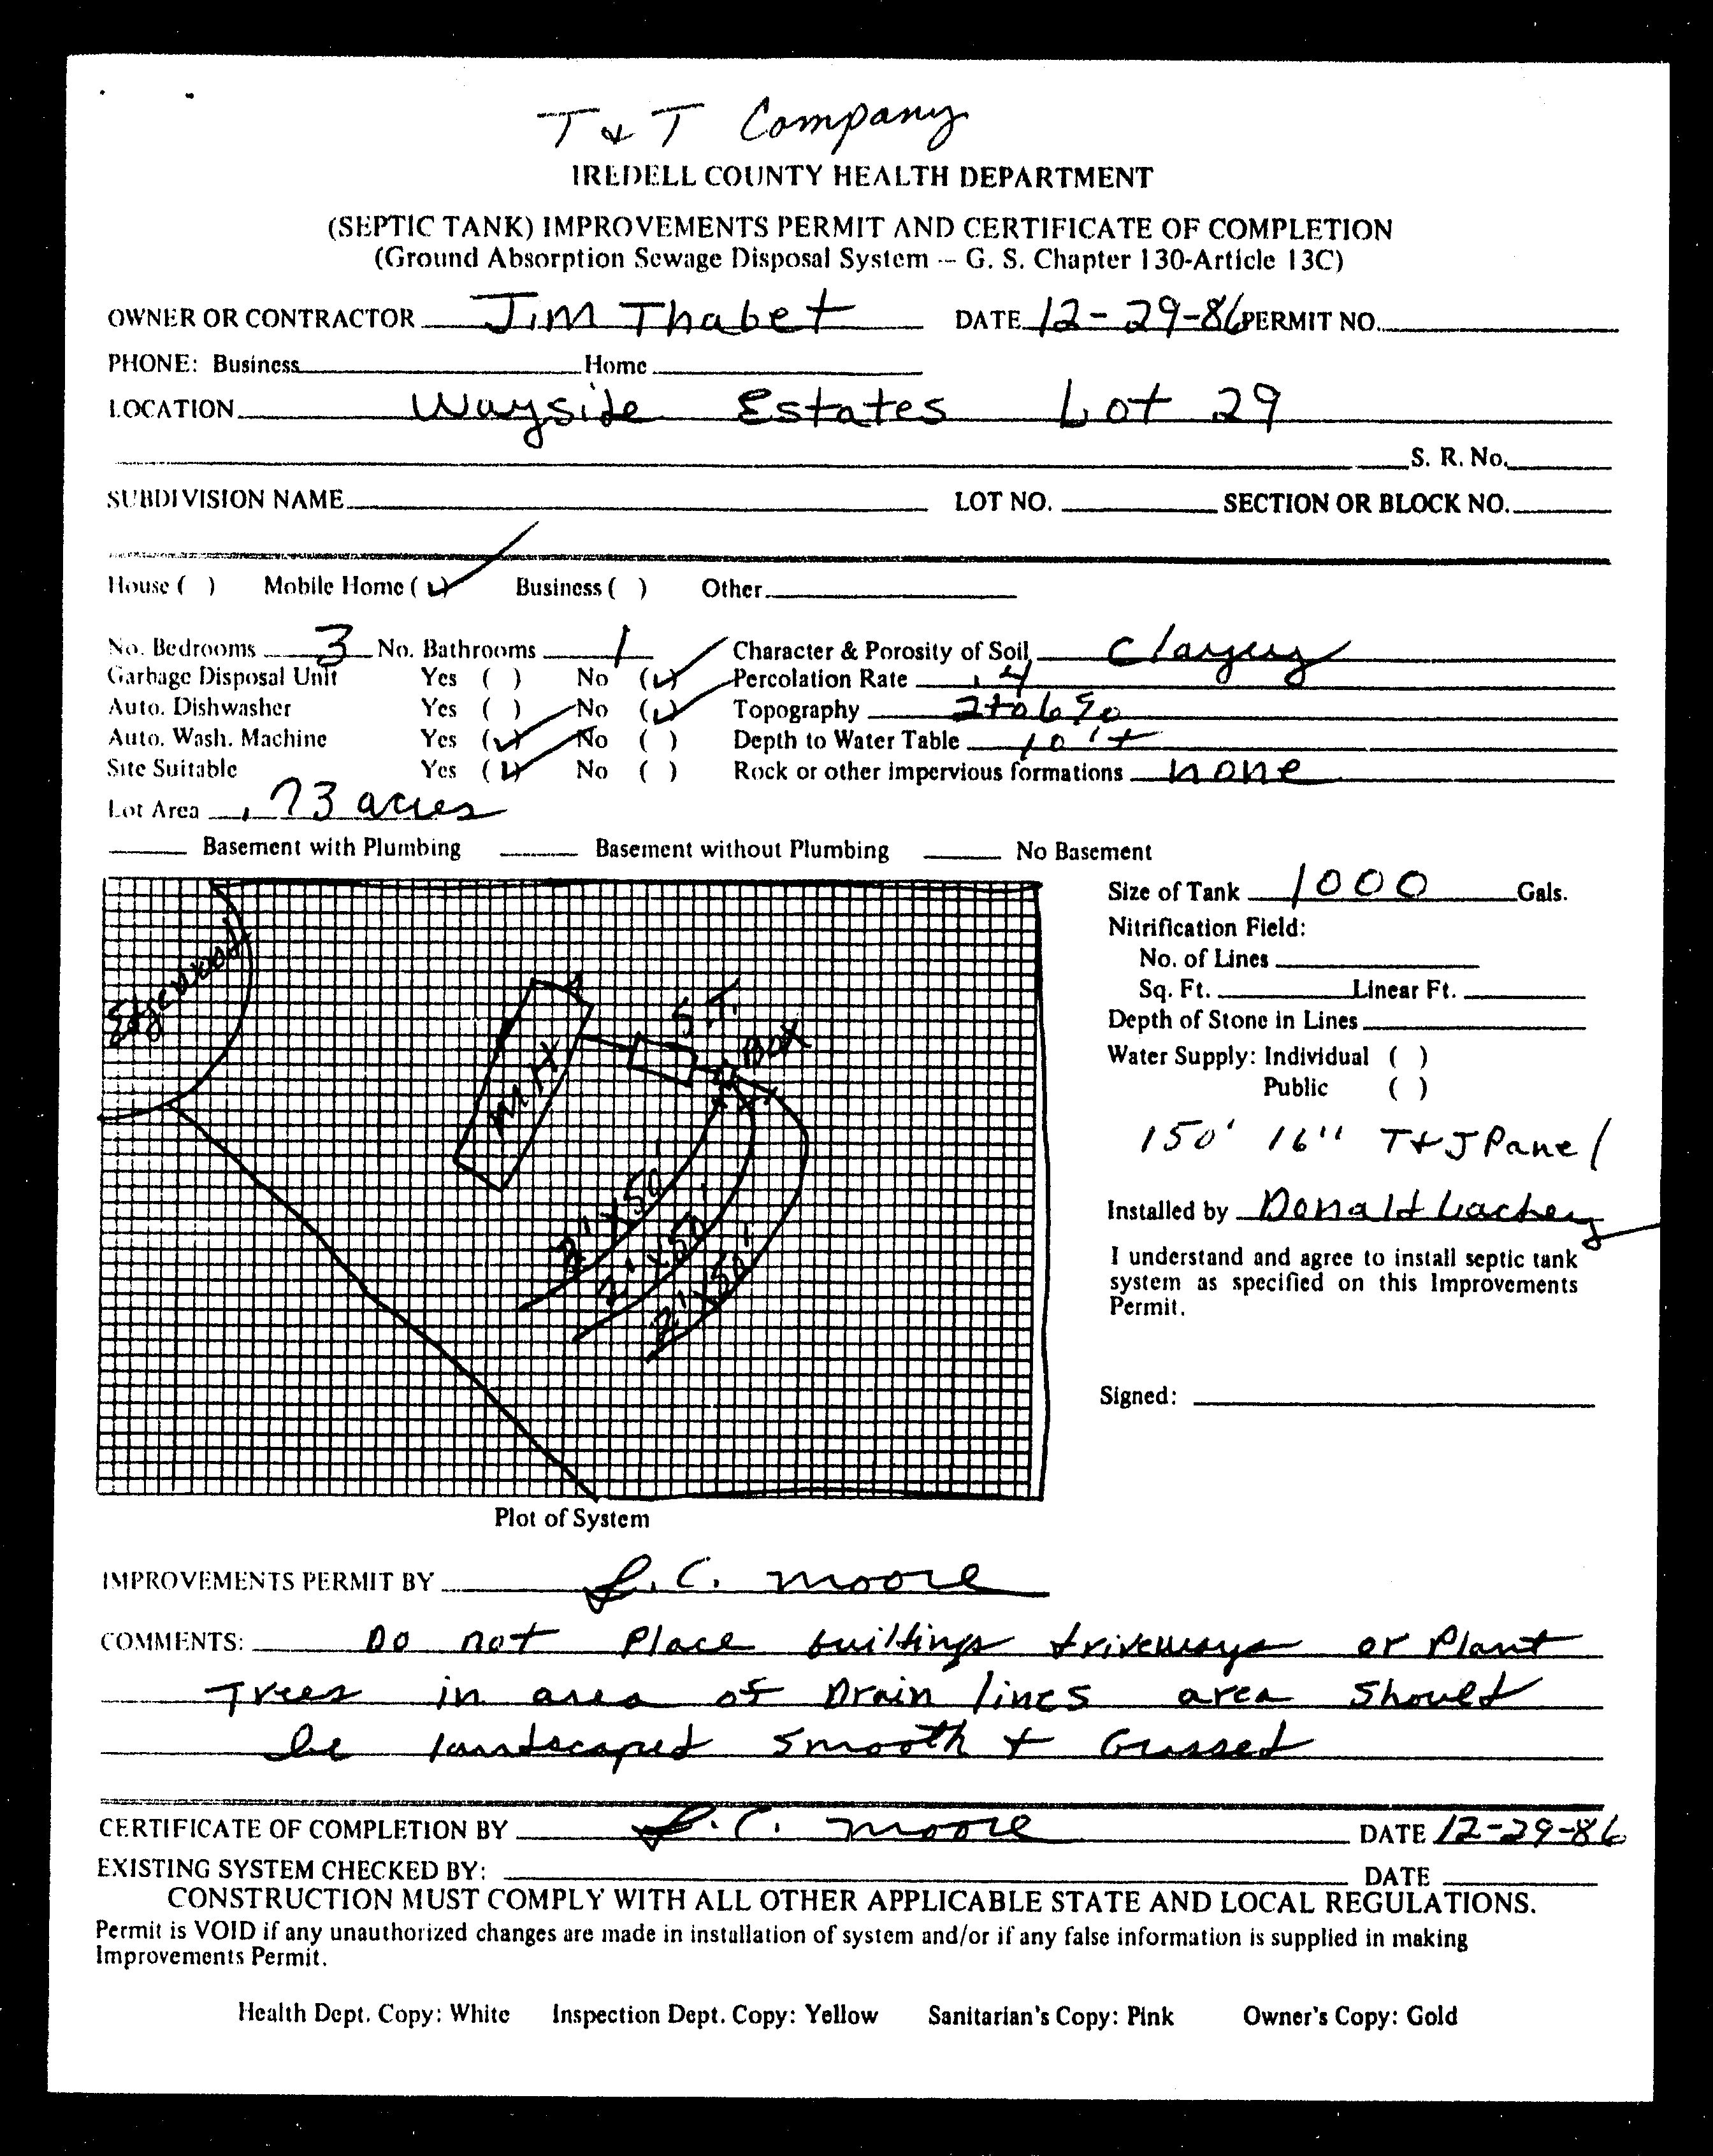 T & T Company
IREDELL COUNTY HEALTH DEPARTMENT
(SEPTIC TANK) IMPROVEMENTS PERMIT AND CERTIFICATE OF COMPLETION
(Ground Absorption Sewage Disposal System -- G. S. Chapter 130-Article 13C)
OWNER OR CONTRACTOR Jim Thabet DATE 12-29-86 PERMIT NO.
PHONE: Business Home
LOCATION Wayside Estates Lot 29
S. R. No.
SUBDIVISION NAME LOT NO. SECTION OR BLOCK NO.
House ( ) Mobile Home (✓) Business ( ) Other
No. Bedrooms 3 No. Bathrooms 1 Character & Porosity of Soil Clayey
Garbage Disposal Unit Yes ( ) No (✓) Percolation Rate .4
Auto. Dishwasher Yes ( ) No (✓) Topography 2 to 6 %
Auto. Wash. Machine Yes (✓) No ( ) Depth to Water Table 10'+
Site Suitable Yes (✓) No ( ) Rock or other impervious formations none
Lot Area .73 acres
Basement with Plumbing Basement without Plumbing No Basement
Size of Tank 1000 Gals.
Nitrification Field:
No. of Lines
Sq. Ft. Linear Ft.
Depth of Stone in Lines
Water Supply: Individual ( )
Public ( )
150' 16" T+J Panel
Installed by Donald Lackey
I understand and agree to install septic tank
system as specified on this Improvements
Permit.
Signed:
Edgewood
M H
S.T.
Box
2' X 50'
2' X 50'
2' X 50'
Plot of System
IMPROVEMENTS PERMIT BY L.C. Moore
COMMENTS: Do not Place buildings driveways or Plant
Trees in area of Drain lines area Should
be landscaped Smooth + Grassed
CERTIFICATE OF COMPLETION BY L.C. Moore DATE 12-29-86
EXISTING SYSTEM CHECKED BY: DATE
CONSTRUCTION MUST COMPLY WITH ALL OTHER APPLICABLE STATE AND LOCAL REGULATIONS.
Permit is VOID if any unauthorized changes are made in installation of system and/or if any false information is supplied in making
Improvements Permit.
Health Dept. Copy: White Inspection Dept. Copy: Yellow Sanitarian's Copy: Pink Owner's Copy: Gold